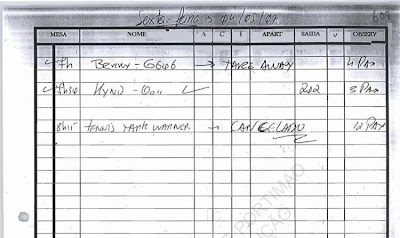 Sexta-feira → 04/05/07 604
MESA NOME A C I APART SAIDA V OBSERV
✓ 7h BERRY - G646 → TAKE AWAY 4 PAX
✓ 7h30 HYNIS - ✓ 202 3 PAX
8h15 TENNIS MARK WARNER → CANCELADO 12 PAX
PORTIMÃO